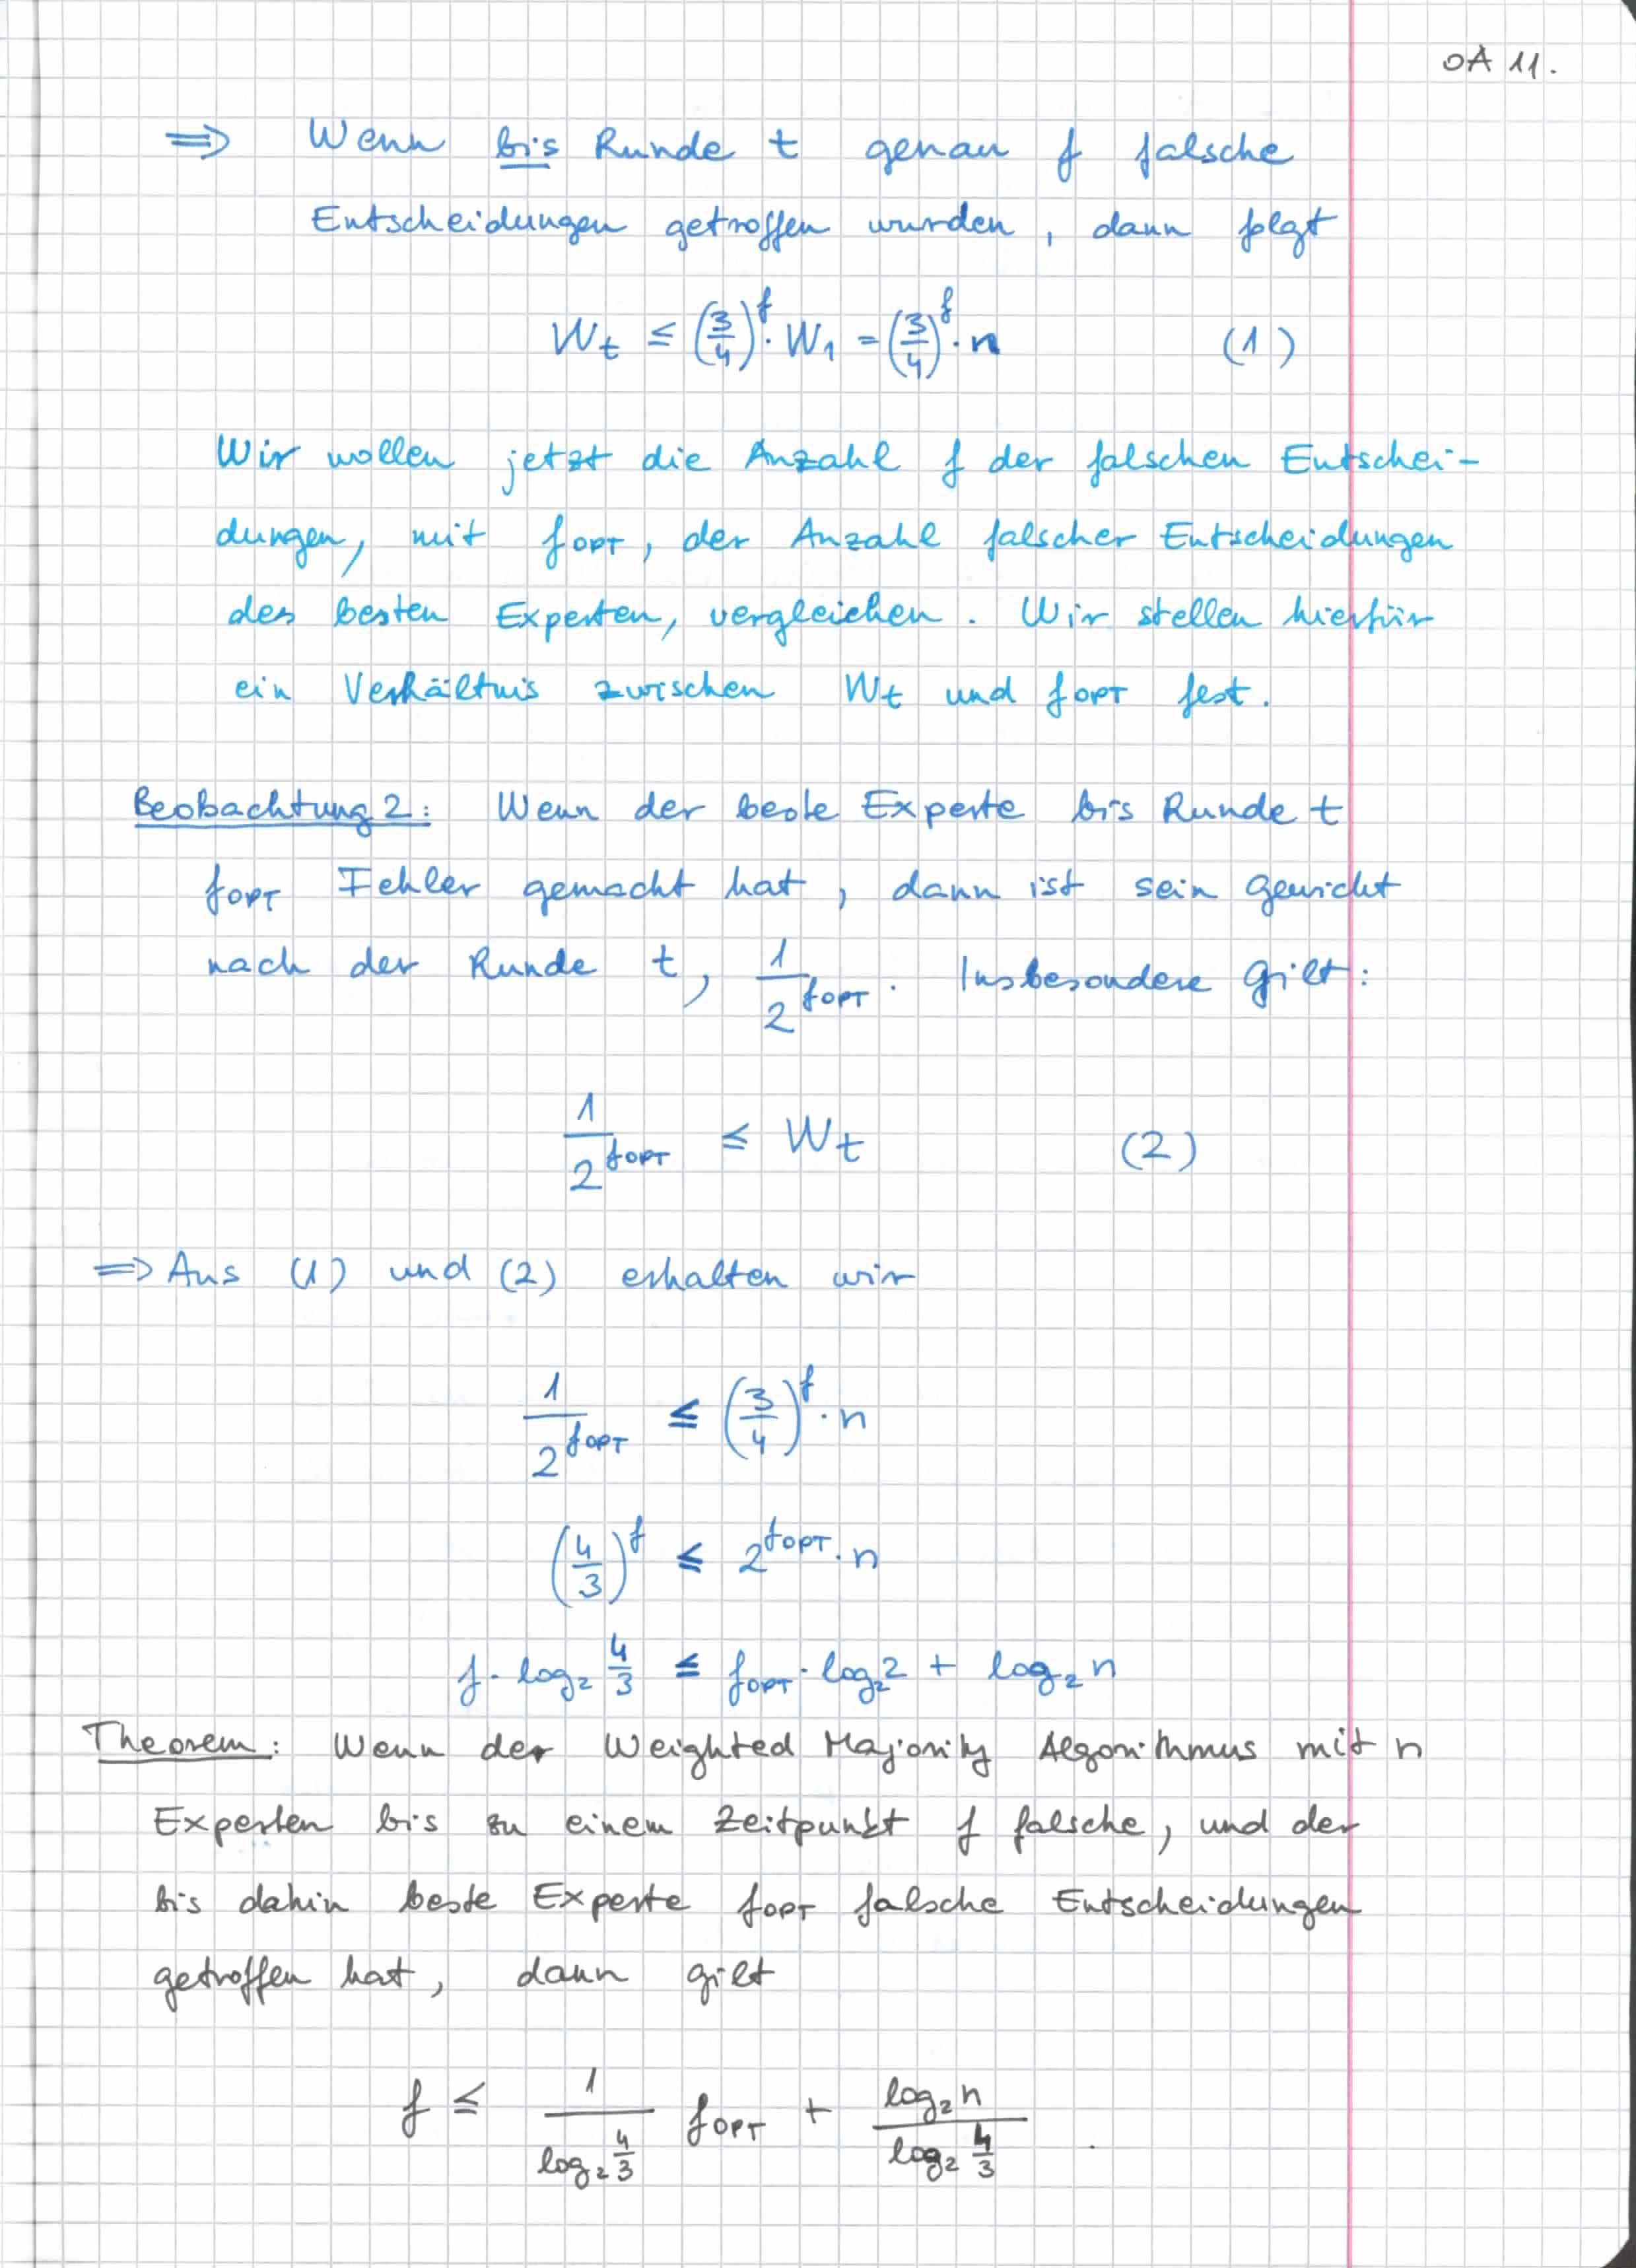 OA 11.
⟹ Wenn bis Runde t genau f falsche
Entscheidungen getroffen wurden, dann folgt
W_t ≤ (3/4)^f · W_1 = (3/4)^f · n (1)
Wir wollen jetzt die Anzahl f der falschen Entschei-
dungen, mit f_OPT, der Anzahl falscher Entscheidungen
des besten Experten, vergleichen. Wir stellen hierfür
ein Verhältnis zwischen W_t und f_OPT fest.
Beobachtung 2: Wenn der beste Experte bis Runde t
f_OPT Fehler gemacht hat, dann ist sein Gewicht
nach der Runde t, 1/2^{f_OPT}. Insbesondere gilt:
1/2^{f_OPT} ≤ W_t (2)
⟹ Aus (1) und (2) erhalten wir
1/2^{f_OPT} ≤ (3/4)^f · n
(4/3)^f ≤ 2^{f_OPT} · n
f · log_2 4/3 ≤ f_OPT · log_2 2 + log_2 n
Theorem: Wenn der Weighted Majority Algorithmus mit n
Experten bis zu einem Zeitpunkt f falsche, und der
bis dahin beste Experte f_OPT falsche Entscheidungen
getroffen hat, dann gilt
f ≤ 1/(log_2 4/3) f_OPT + (log_2 n)/(log_2 4/3) .